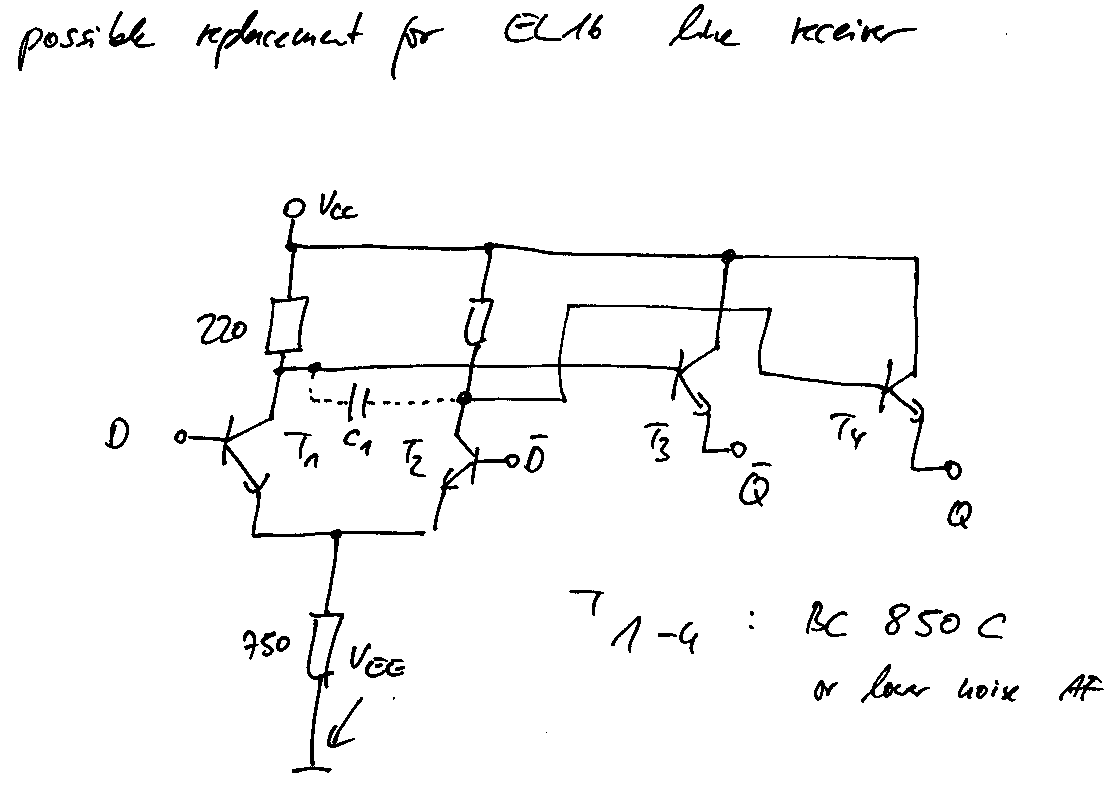 possible replacement for EL16 line receiver
Vcc
220
D
T1
C1
T2
D̄
T3
Q̄
T4
Q
750
VEE
T1-4 : BC 850 C
or lower noise AF